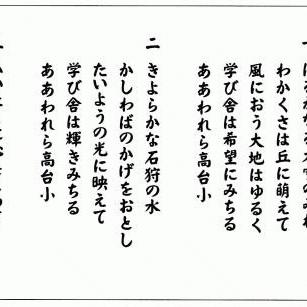 わかくさは丘に萌えて
風におう大地はゆるく
学び舎は希望にみちる
ああわれら高台小
二 きよらかな石狩の水
かしわばのかげをおとし
たいようの光に映えて
学び舎は輝きみちる
ああわれら高台小